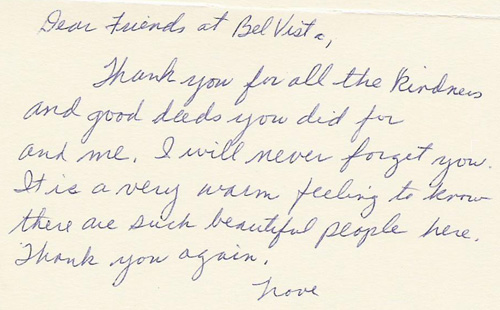 Dear Friends at Bel Vista,
Thank you for all the kindness
and good deeds you did for
and me. I will never forget you.
It is a very warm feeling to know
there are such beautiful people here.
Thank you again.